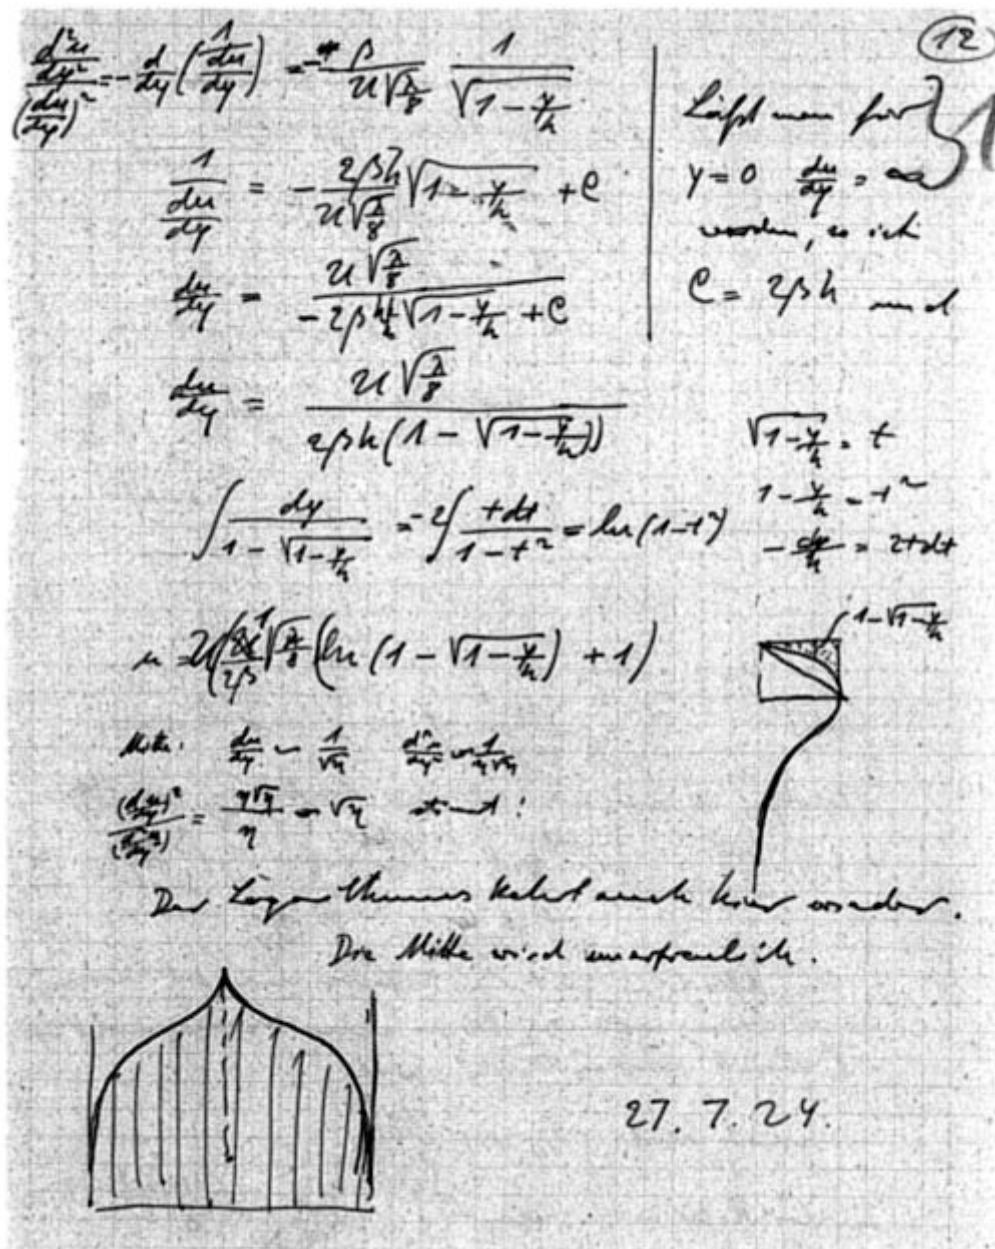 12
d²u/dy² / (du/dy)² = - d/dy (1 / du/dy) = - β / (U√(λ/8)) · 1 / √(1 - y/h)
1 / du/dy = - 2βh / (U√(λ/8)) √(1 - y/h) + C
du/dy = U√(λ/8) / (-2βh √(1 - y/h) + C)
Läßt man für
y = 0 du/dy = ∞
werden, so ist
C = 2βh und
du/dy = U√(λ/8) / (2βh(1 - √(1 - y/h)))
∫ dy / (1 - √(1 - y/h)) = -2∫ t dt / (1 - t²) = ln(1 - t²)
√(1 - y/h) = t
1 - y/h = t²
- dy/h = 2t dt
u = U 1/2β √(λ/8) (ln(1 - √(1 - y/h)) + 1)
1 - √(1 - y/h)
Mitte: du/dy ~ 1/√η d²u/dy² ~ 1/(η√η)
(du/dy)² / (d²u/dy²) = η√η / η = √η stimmt!
Der Logarithmus kehrt auch hier wieder.
Die Mitte wird unerfreulich.
27. 7. 24.